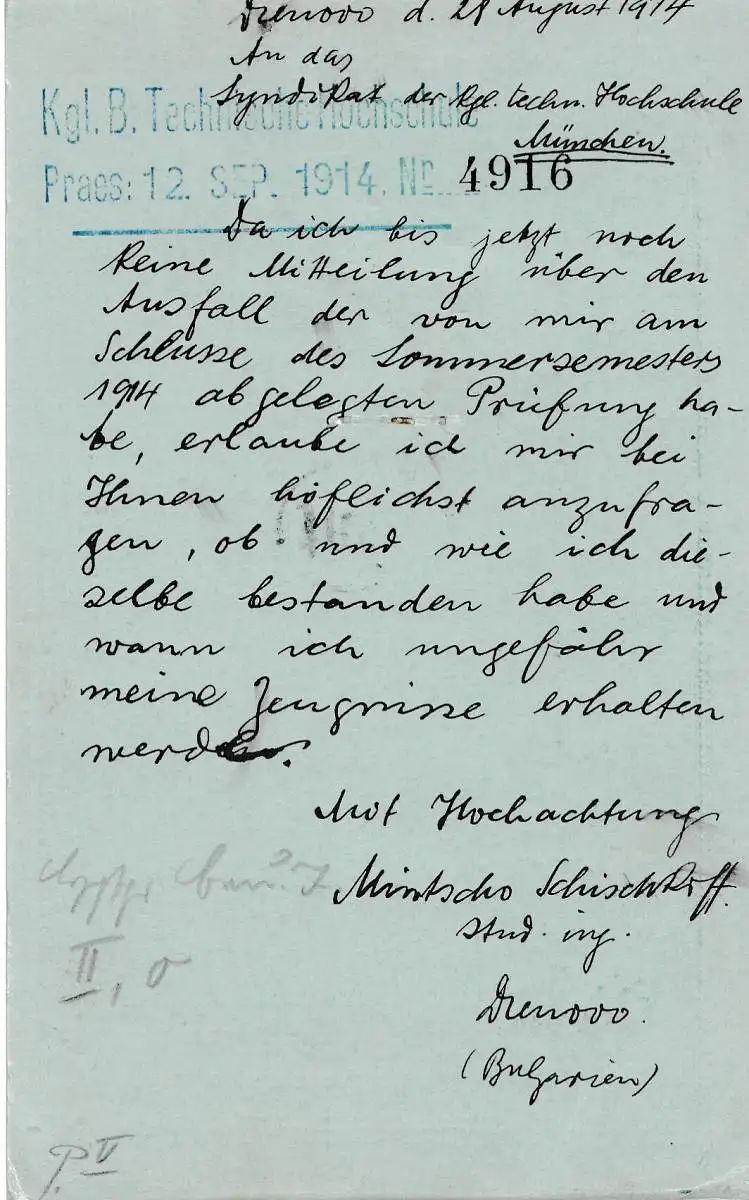 Drenovo d. 29 August 1914
An das
Syndikat der Kgl. techn. Hochschule
München.
Kgl. B. Technische Hochschule
Praes: 12. SEP. 1914. Nr. 4916
Da ich bis jetzt noch
keine Mitteilung über den
Ausfall der von mir am
Schlusse des Sommersemesters
1914 abgelegten Prüfung ha-
be, erlaube ich mir bei
Ihnen höflichst anzufra-
gen, ob und wie ich die-
selbe bestanden habe und
wann ich ungefähr
meine Zeugnisse erhalten
werde.
Mit Hochachtung
Mintscho Schischkoff.
stud. ing.
Drenovo.
(Bulgarien)
II,
P. V